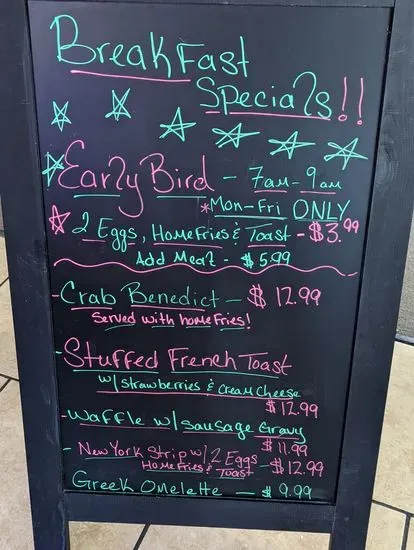 BreakFast
Specials!!
Early Bird - 7am - 9am
*Mon-Fri ONLY
2 Eggs, HomeFries & Toast - $3.99
Add Meat - $5.99
- Crab Benedict - $12.99
Served with homeFries!
- Stuffed French Toast
w/strawberries & Cream Cheese
$12.99
- Waffle w/ Sausage Gravy
$11.99
- New York Strip w/ 2 Eggs
HomeFries & Toast - $12.99
Greek Omelette - $9.99